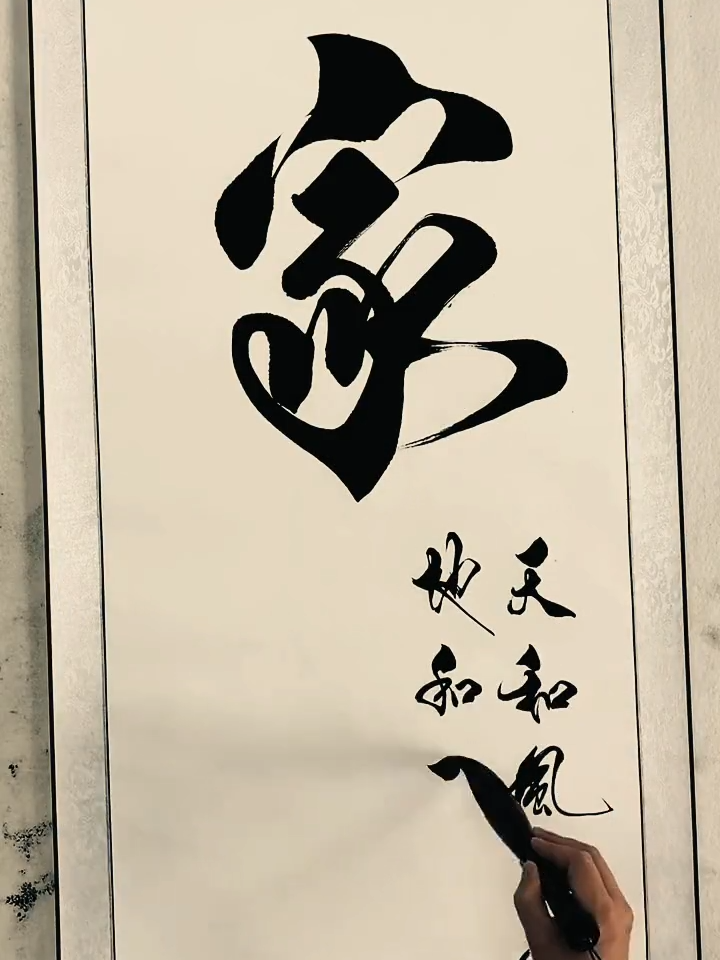 家
天和風
地和